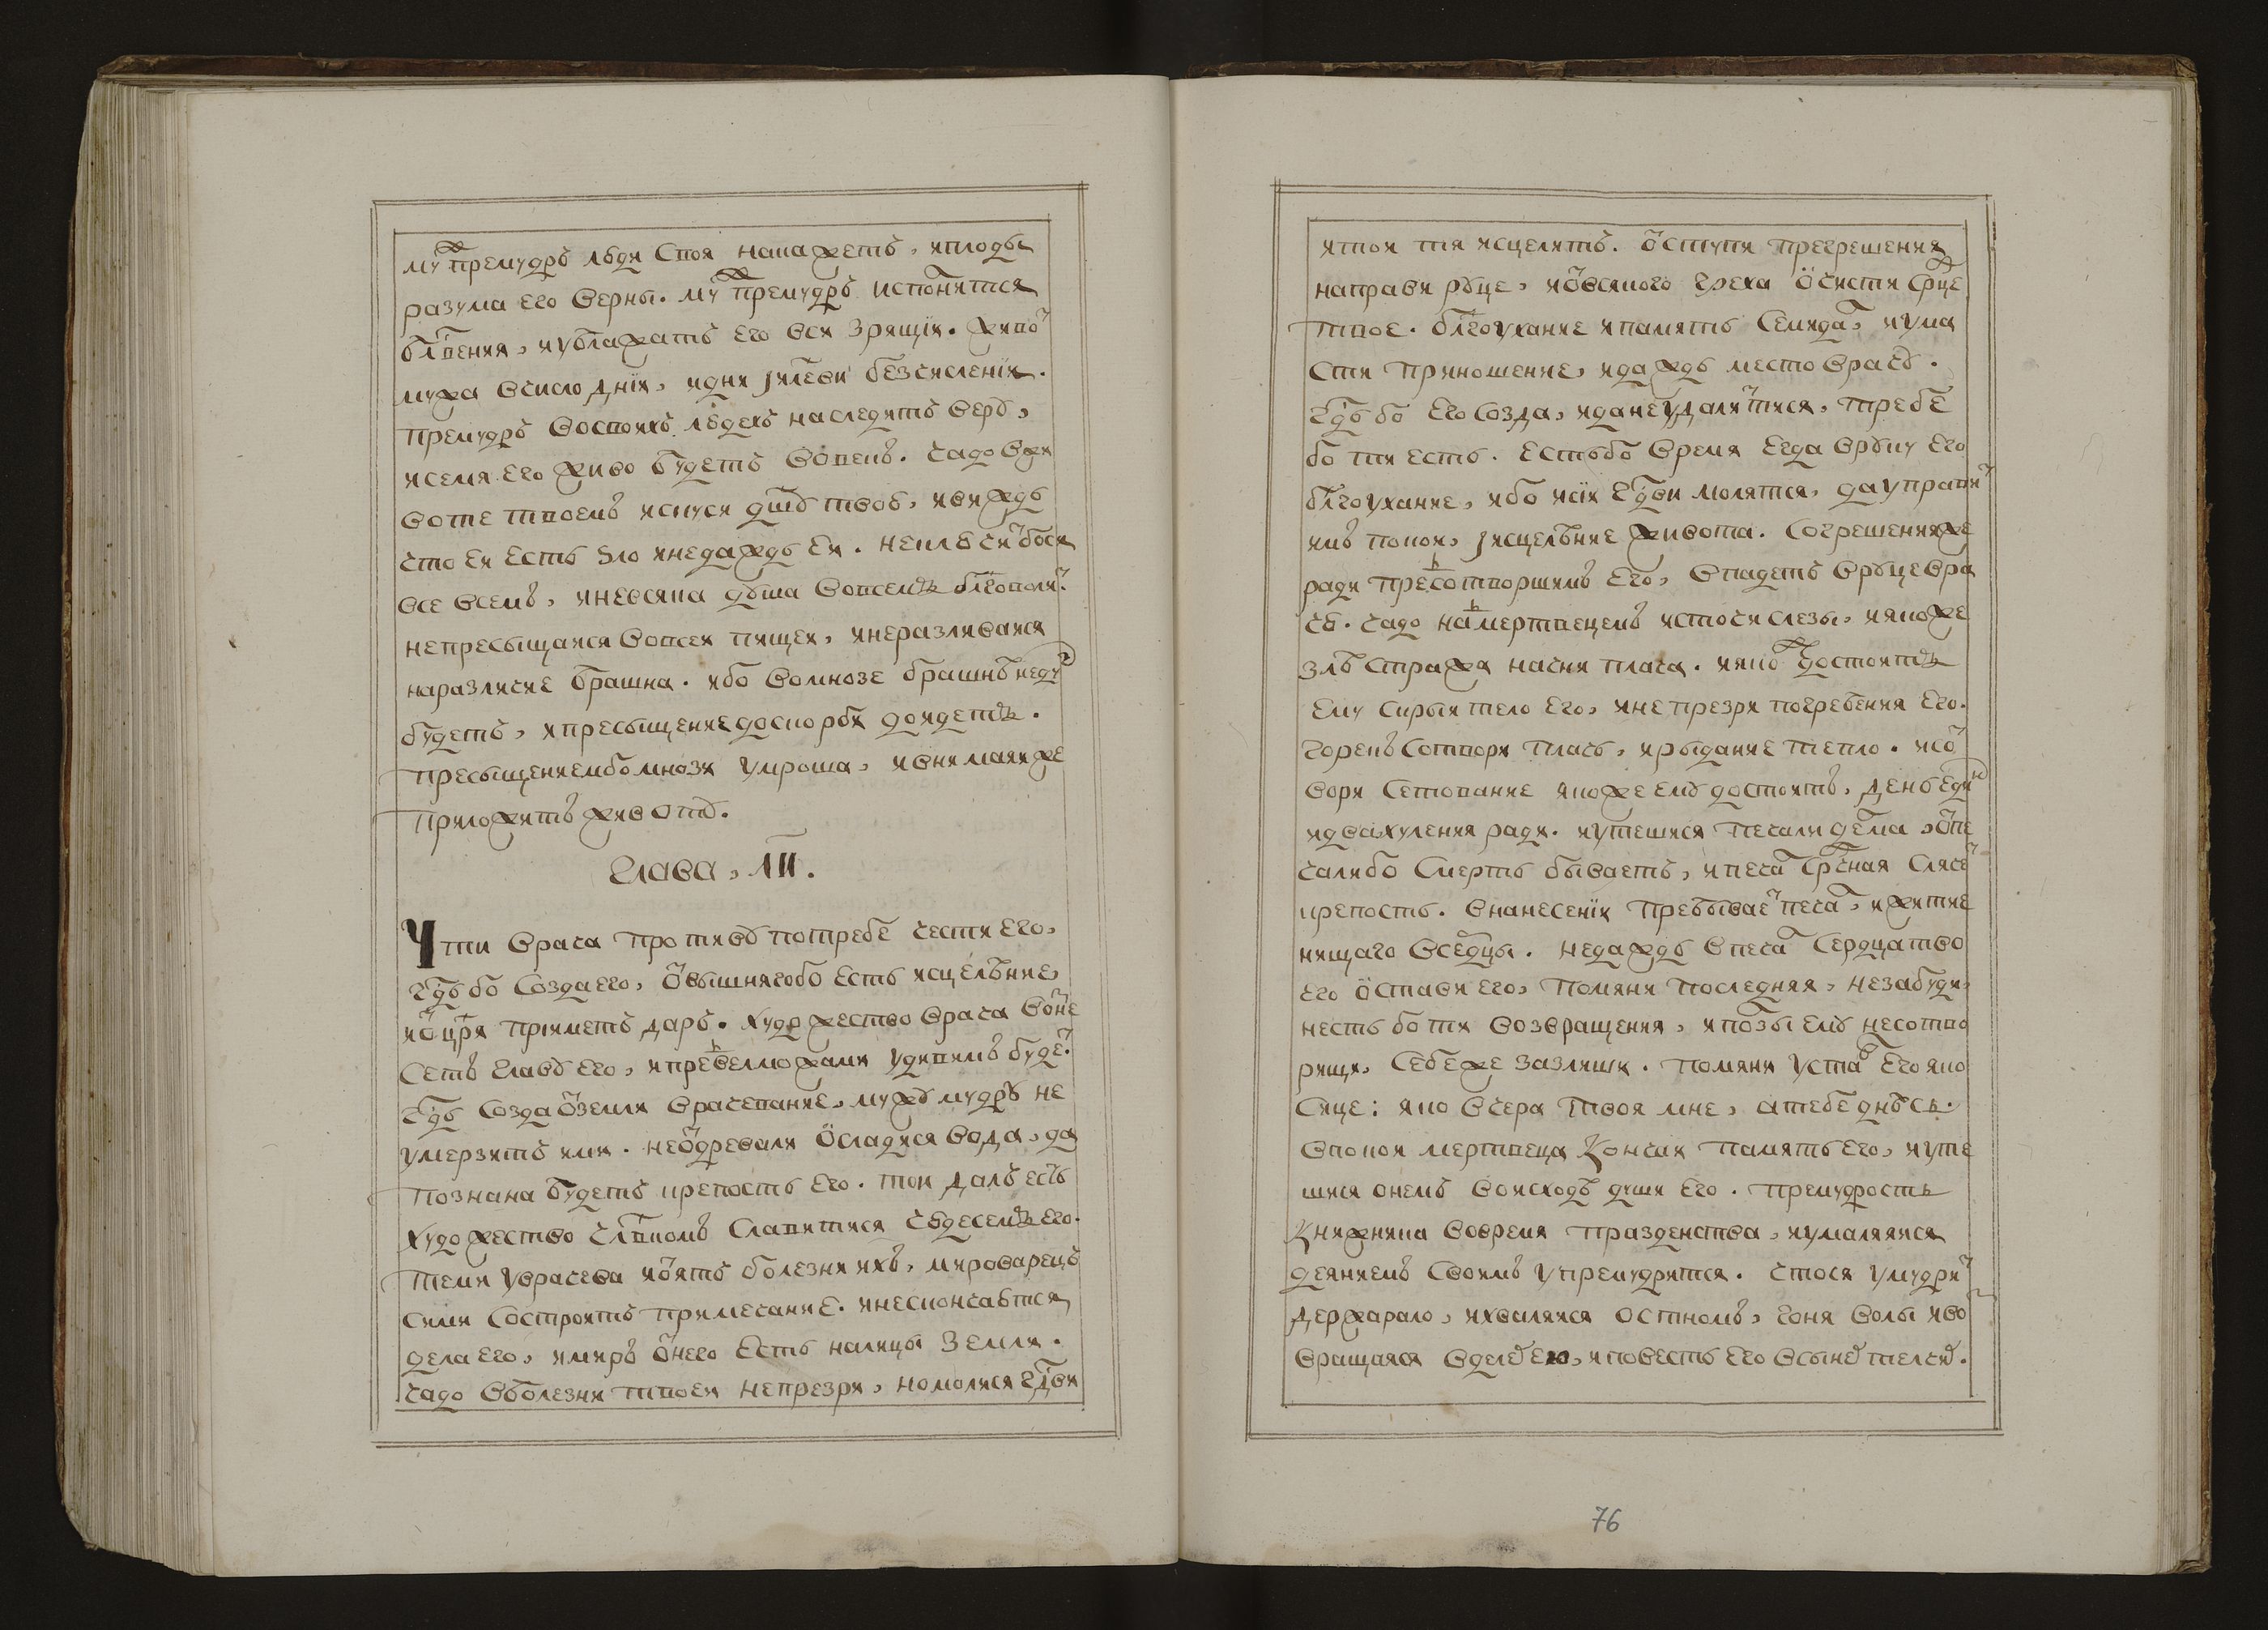 му́ж премудръ люди своя накажетъ, и плоды
разума его верны. му́ж премудръ исполнится
бл҃гвения, и ублажатъ его вси зрящїи. живо́т
мужа в число днїи, и дни ї҃илеви безчисленїи.
премудръ во своихъ людехъ наследитъ веру,
и семя его живо будетъ во векъ. чадо в жи
воте твоемъ искуси дш҃у твою, и виждь
что еи есть зло и не даждь еи. не ползуют бося
все всемъ, и не всяка душа во всемъ бл҃говолит.
не пресыщаися во всеи пищеи, и не разливаися
на различие брашна. ибо во мнозе брашне недуг
будетъ, и пресыщение до скорби доидетъ.
пресыщением бо мнози умроша, и внимаяи же
приложитъ животъ.
Глава, л҃и.
Чти врача противу потребе чести его,
гд҃ь бо созда его, ѿ вышняго бо есть исцеление,
и ѿ цр҃я прииметъ даръ. художество врача возне
сетъ главу его, и пред велможами удивимъ будет.
гд҃ь созда ѿ земли врачевание, мужъ мудръ не
умерзитъ ими. не ѿ древа ли ѡсладися вода, да
познана будетъ крепость его. тои далъ есть
художество чл҃вкомъ славитися чюдесемъ его.
теми уврачева и ѿятъ болезни ихъ, мироварецъ
сими состроитъ примесание. и не скончаются
дела его, и миръ ѿ него есть на лицы земли.
чадо в болезни твоеи не презри, но молися гд҃ви
и тои тя исцелитъ. ѿступи прегрешения
направи руце, и ѿ всякого греха ѡчисти срдце
твое. бл҃гоухание и память семидал, и ума
сти приношение, и даждь место врачю.
гд҃ь бо его созда, и да не удалит тися, требе
бо ти есть. есть бо время егда в руку его
бл҃гоухание, ибо и сїи гд҃ви молятся, да управит
имъ покои, и исцеление живота. согрешения же
ради пред сотворшимъ его, впадетъ в руце вра
чю. чадо над мертвецемъ источи слезы, и якоже
зле стража начни плача. и яко ж достоитъ
ему скрыи тело его, и не презри погребения его.
горекъ сотвори плачь, и рыдание тепло. и со
вори сетование якоже ему достоитъ, день един
и два хуления ради. и утешися печали дела, ѿ пе
чали бо смерть бываетъ, и печал срдчная слячет
крепость. в нанесенїи пребывает печал, и житие
нищаго в седцы. не даждь в печал сердца тво
его ѡстави его, помяни последняя, не забуди,
несть бо ти возвращения, и ползы ему не сотво
риши, себе же зазлиши. помяни устав его яко
сице: яко вчера твоя мне, а тебе днесь.
в покои мертвеца кончаи память его, и уте
шися о немъ во исходъ души его. премудрость
книжника во время празденства, и умаляяися
деяниемъ своимъ упремудрится. чтося умудрит
держа рало, и хваляися остномъ, гоня волы и во
вращаяся в деле ею, и повесть его в сынех телчих.
76